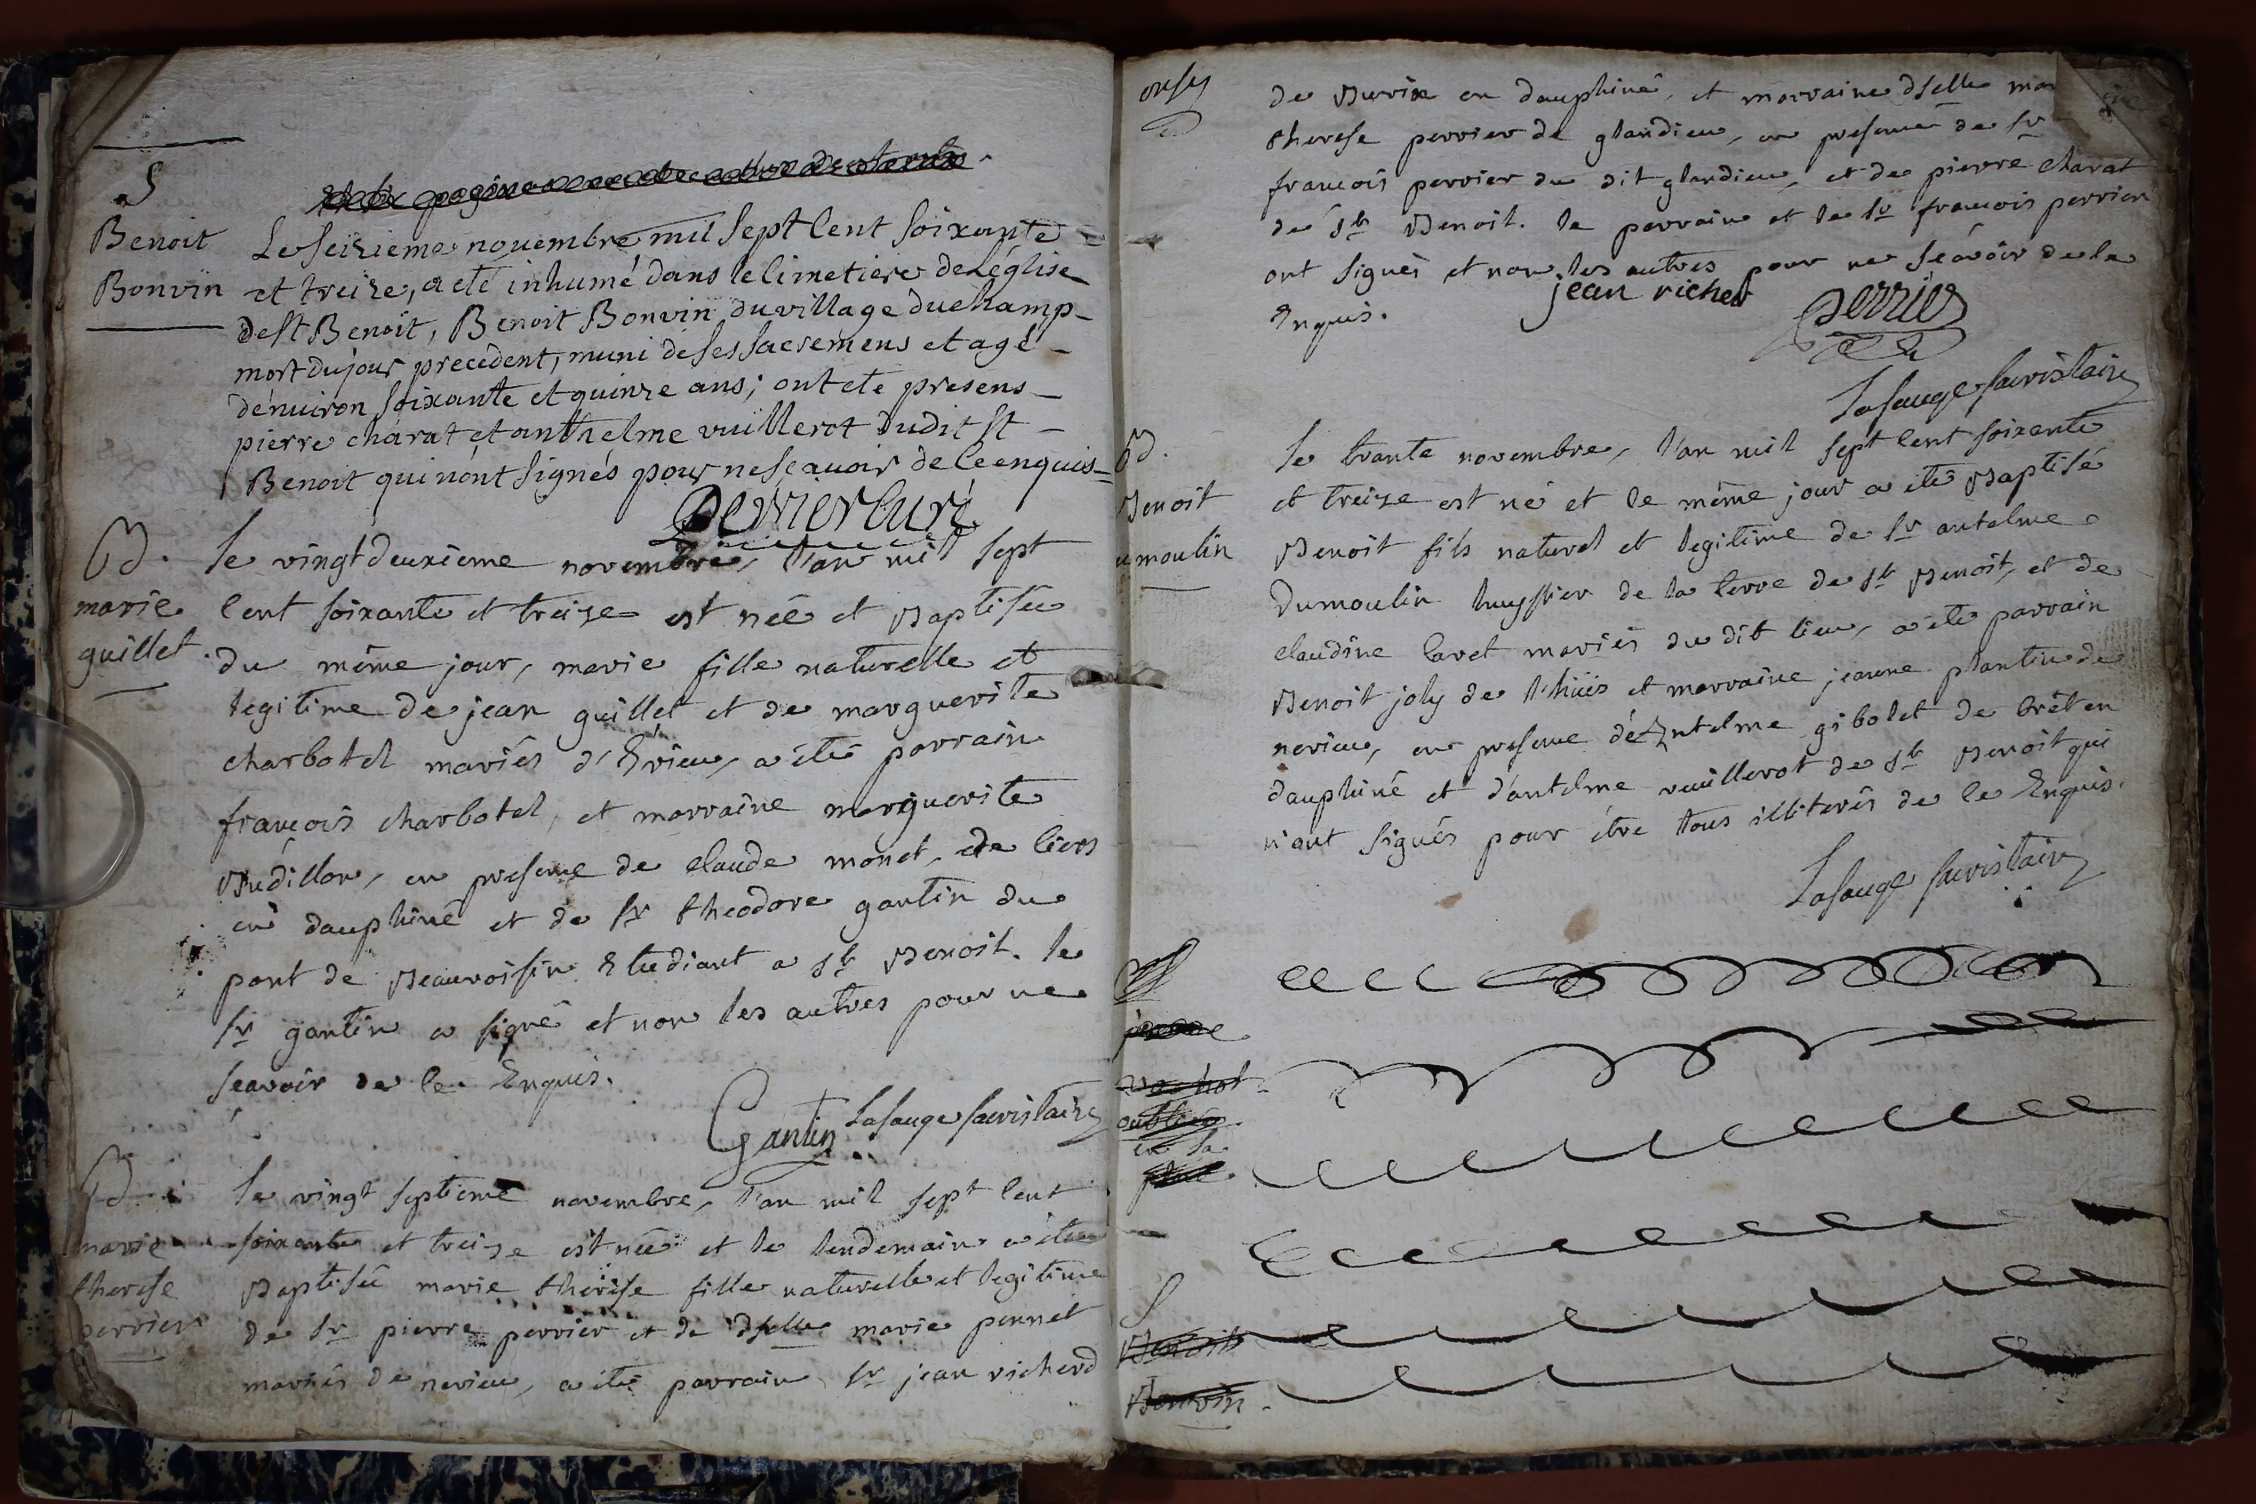 S
Benoit
Bonvin
Le seizieme novembre mil sept Cent soixante
et treize, a eté inhumé dans le Cimetiere de Léglise
de St Benoit, Benoit Bonvin du village du champ
mort du jour precedent, muni de ses sacremens et agé
dénuiron soixante et quinze ans; ont eté presens
pierre charat et anthelme vuillerot dudit St
Benoit qui nónt signés pour ne sçauoir de Ce enquis
Perrier Curé
Bd.
marie
guillet.
le vingt deuxieme novembre, l'an mil sept
Cent soixante et treize est née et Baptisée
du même jour, marie fille naturelle et
legitime de jean guillet et de marguerite
charbotel mariés d'Evieu, a été parrain
françois charbotel, et marraine marguerite
Budillon, en presence de claude monet, de Ciers
en dauphiné et de sr theodore gantin du
pont de Beauvoisin Etudiant a st Benoit. le
sr gantin a signé et non les autres pour ne
sçavoir de Ce Enquis.
Gantin Lasauge sacristain
Bd.
marie
therese
perrier
le vingt septieme novembre, l'an mil sept Cent
soixante et treize est née et le lendemain a été
Baptisée marie thérèse fille naturelle et legitime
de sr pierre perrier et de dselle marie pennet
mariés de nerieu, a été parrain sr jean richerd
de en dauphiné, et marraine dselle mar
therese perrier de glandieu, en presence de sr
françois perrier du dit glandieu, et de pierre charat
de st Benoit. le parrain et le sr françois perrier
ont signés et non les autres pour ne sçavoir de Ce
Enquis.
jean richer
perrier
Lasauge sacristain
Bd.
Benoit
umoulin
le trante novembre, l'an mil sept Cent soixante
et treize est né et le même jour a été Baptisé
Benoit fils naturel et legitime de sr antelme
Dumoulin huyssier de la terre de st Benoit, et de
claudine Cavet mariés du dit lieu, a été parrain
Benoit joly de l'hüis et marraine jeanne plantin de
nerieu, en presence dé Antelme gibolet de Brêt en
dauphiné et d'antelme vuillerot de st Benoit qui
n'ont signés pour être tous illiterés de Ce Enquis.
Lasauge sacristain
S
Benoit
Bonvin.